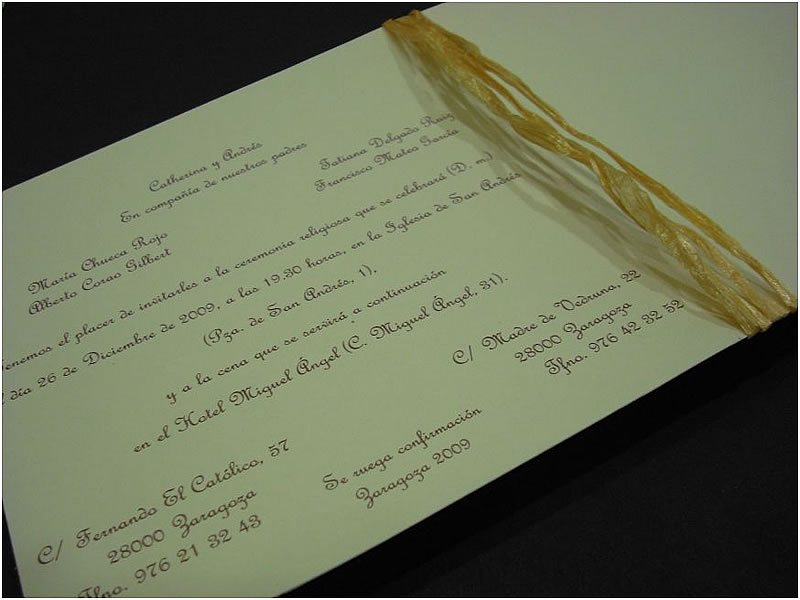 Catherina y Andrés
En compañía de nuestros padres
María Chueca Rojo
Alberto Corao Gilbert
Tatiana Delgado Ruiz
Francisco Mateo García
enemos el placer de invitarles a la ceremonia religiosa que se celebrará (D. m.)
día 26 de Diciembre de 2009, a las 19,30 horas, en la Iglesia de San Andrés
(Pza. de San Andrés, 1),
y a la cena que se servirá a continuación
en el Hotel Miguel Ángel (C. Miguel Ángel, 31).
C/ Fernando El Católico, 57
28000 Zaragoza
Tfno. 976 21 32 43
C/ Madre de Vedruna, 22
28000 Zaragoza
Tfno. 976 42 32 52
Se ruega confirmación
Zaragoza 2009